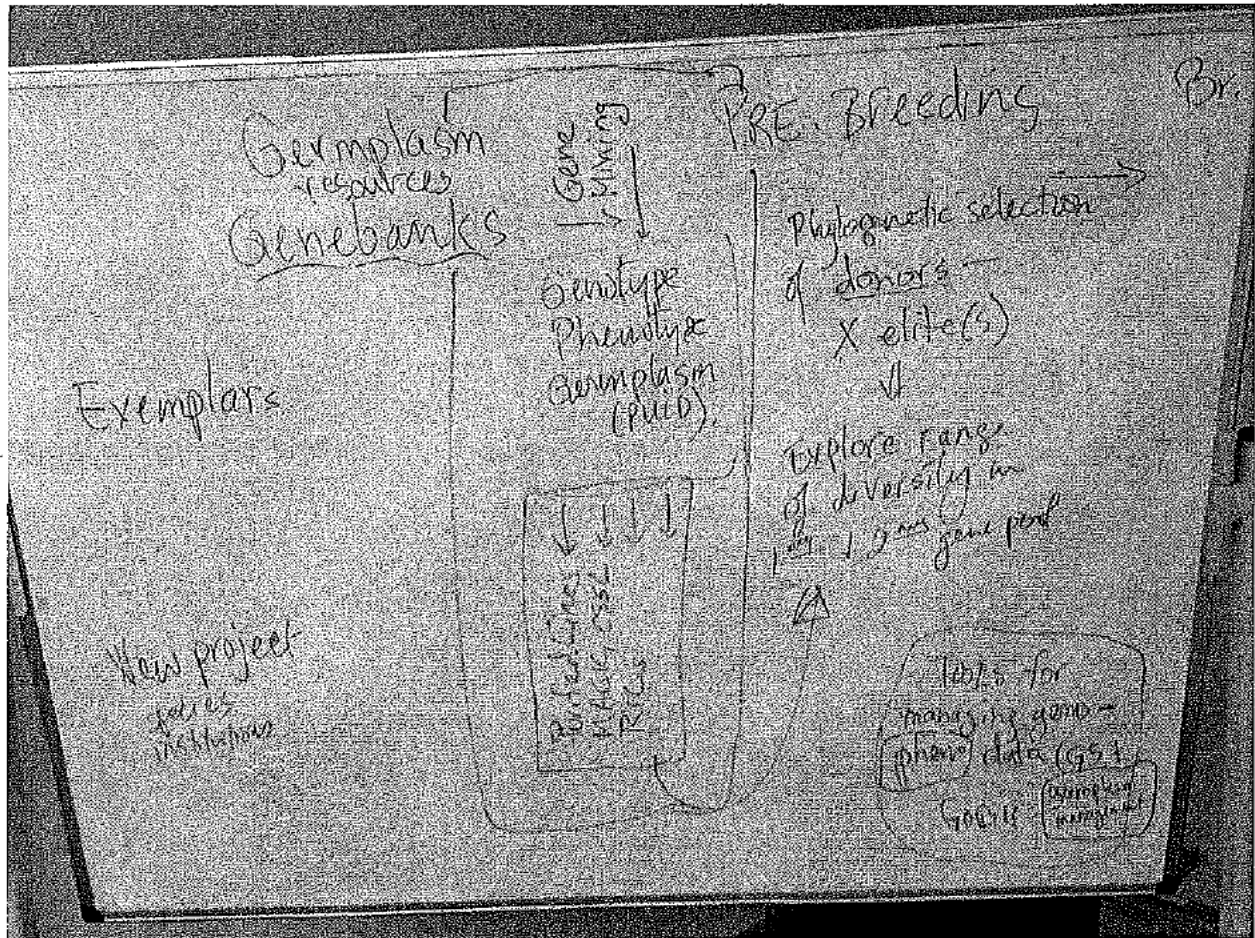 Germplasm
resources
Genebanks
Exemplars
New project
institutions
Gene
Mining
Genotype
Phenotype
Germplasm
(PUID).
Purified lines
MAGIC, CSSL
RILs
PRE. Breeding
Br.
Phylognetic selection
of donors
X elite(s)
Explore range
of diversity in
gene pool
tools for
managing geno -
pheno data (GS)